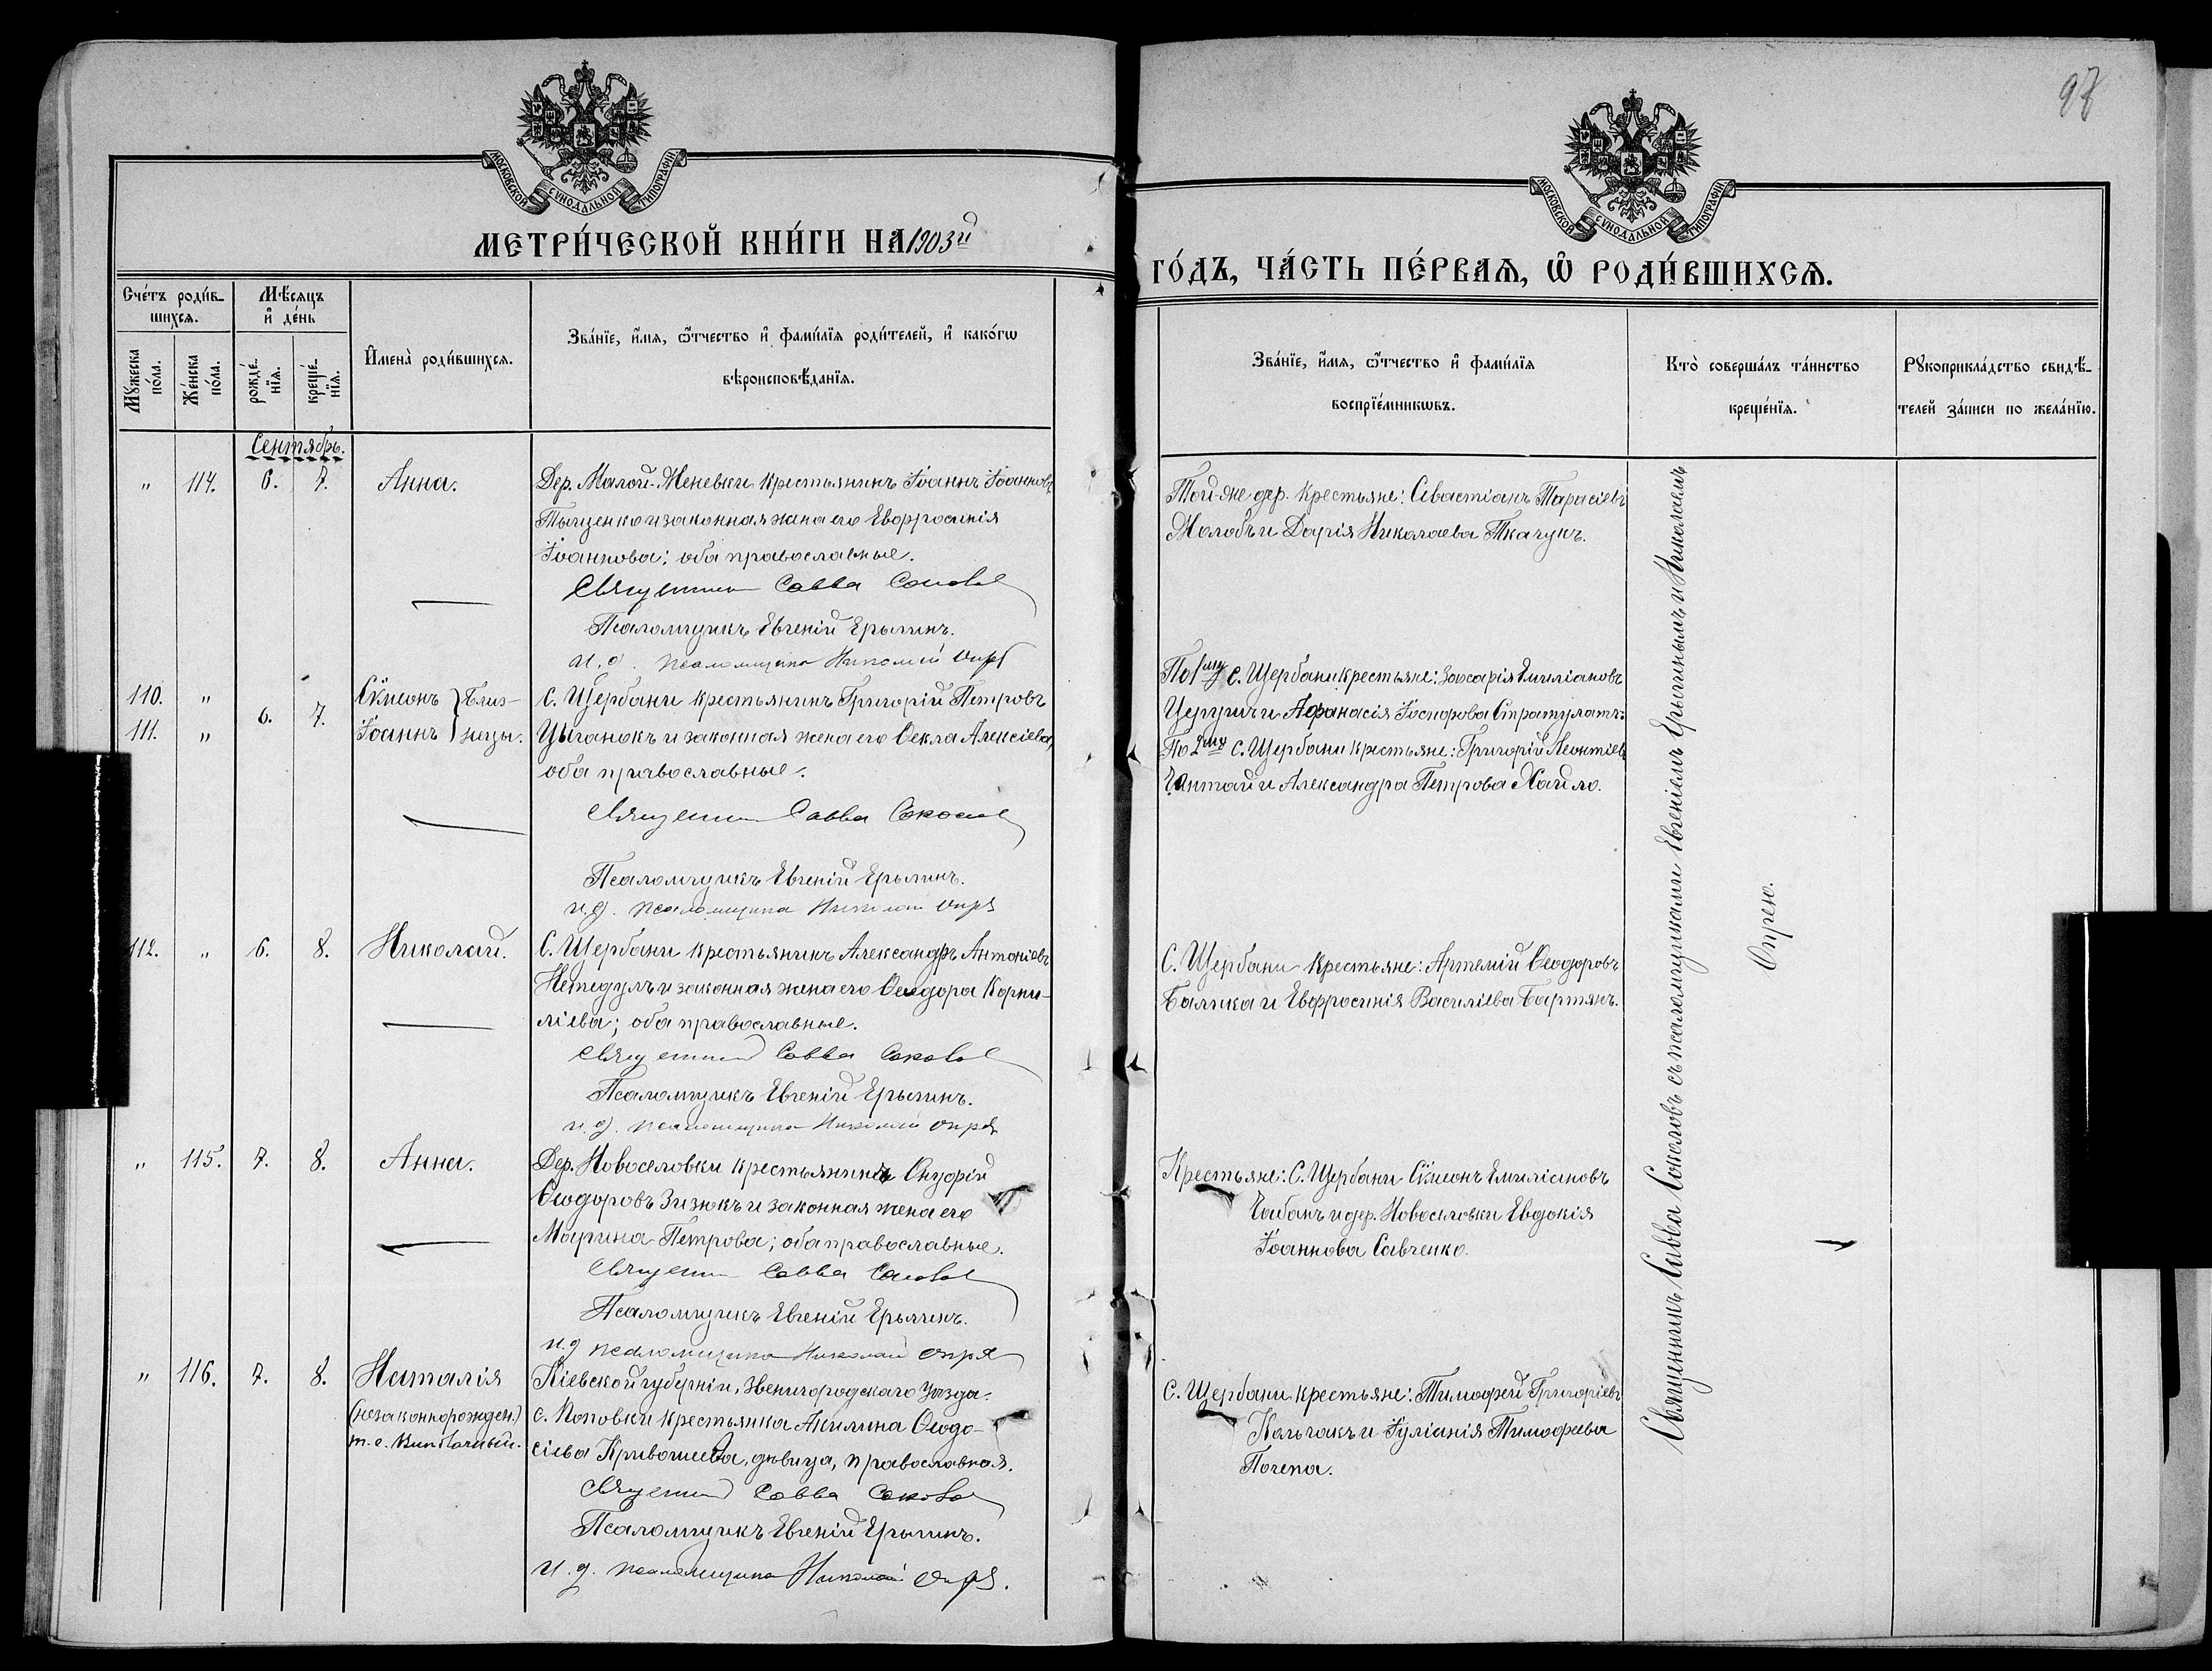 97
МОСКОВСКОЙ СѴНОДАЛЬНОЙ ТИПОГРАФІИ
МЕТРИ́ЧЕСКОЙ КНИ́ГИ НА 1903й
МОСКОВСКОЙ СѴНОДАЛЬНОЙ ТИПОГРАФІИ
ГО́ДЪ, ЧА́СТЬ ПЕ́РВАѦ, Ѿ РОДИ́ВШИХСѦ.
Сче́тъ роди́в-
шихсѧ.
Мѣ́сѧцъ
и҆ де́нь
Мꙋ́жеска
по́ла.
Же́нска
по́ла.
рожде́-
нїѧ.
креще́-
нїѧ.
И҆мена̀ роди́вшихсѧ.
Зва́нїе, и҆́мѧ, ѻ҆́тчество и҆ фами́лїѧ роди́телей, и҆ како́гѡ
вѣроисповѣ́данїѧ.
Зва́нїе, и҆́мѧ, ѻ҆́тчество и҆ фами́лїѧ
воспрїе́мникѡвъ.
Кто̀ соверша́лъ та́инство
креще́нїѧ.
Рꙋкоприкла́дство свидѣ́-
телей за́писи по жела́нїю.
Сентябрь.
" 114. 6. 7. Анна.
Дер. Малой-Меневки крестьянинъ Іоаннъ Іоанновъ
Тыщенко и законная жена его Евфросинія
Іоаннова; оба православные.
Священникъ Савва Соколовъ
Псаломщикъ Евгеній Ерыгинъ.
и. д. псаломщика Николай Опря
Той-же дер. крестьяне: Севастіанъ Тарасіевъ
Жолобъ и Дарія Николаева Ткачукъ.
110. "
111. "
6. 7.
Сѵмеонъ } Близ-
Іоаннъ } нецы.
С. Щербани крестьянинъ Григорій Петровъ
Цыганокъ и законная жена его Ѳекла Алексіева,
оба православные.
Священникъ Савва Соколовъ
Псаломщикъ Евгеній Ерыгинъ.
и. д. псаломщика Николай Опря
По 1му с. Щербани крестьяне: Захарія Емиліановъ
и Афанасія Стратулатъ.
По 2му с. Щербани крестьяне: Григорій Леонтіевъ
и Александра Петрова Хайло.
112. " 6. 8. Николай.
С. Щербани крестьянинъ Александръ Антоніевъ
и законная жена его Ѳеодора Корни-
ліева; оба православные.
Священникъ Савва Соколовъ
Псаломщикъ Евгеній Ерыгинъ.
и. д. псаломщика Николай Опря
С. Щербани крестьяне: Артемій Ѳеодоровъ
Балика и Евфросинія Василіева Бартянъ.
" 115. 7. 8. Анна.
Дер. Новоселовки крестьянинъ Онуфрій
Ѳеодоровъ Зизюкъ и законная жена его
Марина Петрова; оба православные.
Священникъ Савва Соколовъ
Псаломщикъ Евгеній Ерыгинъ.
и. д. псаломщика Николай Опря
Крестьяне: С. Щербани Сѵмеонъ Емиліановъ
Чабанъ и дер. Новоселовки Евдокія
Іоаннова Савченко.
" 116. 7. 8. Наталія
(незаконнорожден.)
Кіевской губерніи, Звенигородскаго уѣзда
с. Поповки крестьянка Акилина Ѳеодо-
сіева Кривошеева, дѣвица, православная.
Священникъ Савва Соколовъ
Псаломщикъ Евгеній Ерыгинъ.
и. д. псаломщика Николай Опря.
С. Щербани крестьяне: Тимофей Григоріевъ
Кольчакъ и Іуліанія Тимофеева
Почепа.
Священникъ Савва Соколовъ съ псаломщиками Евгеніемъ Ерыгинымъ и Николаемъ
Опрею.